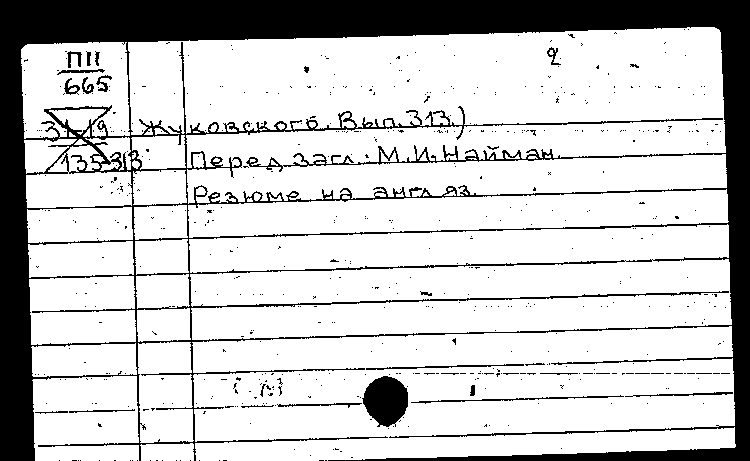 ПII
665
2
31-19
135-313
Жуковского. Вып. 313.)
Перед загл.: М. И. Найман.
Резюме на англ. яз.